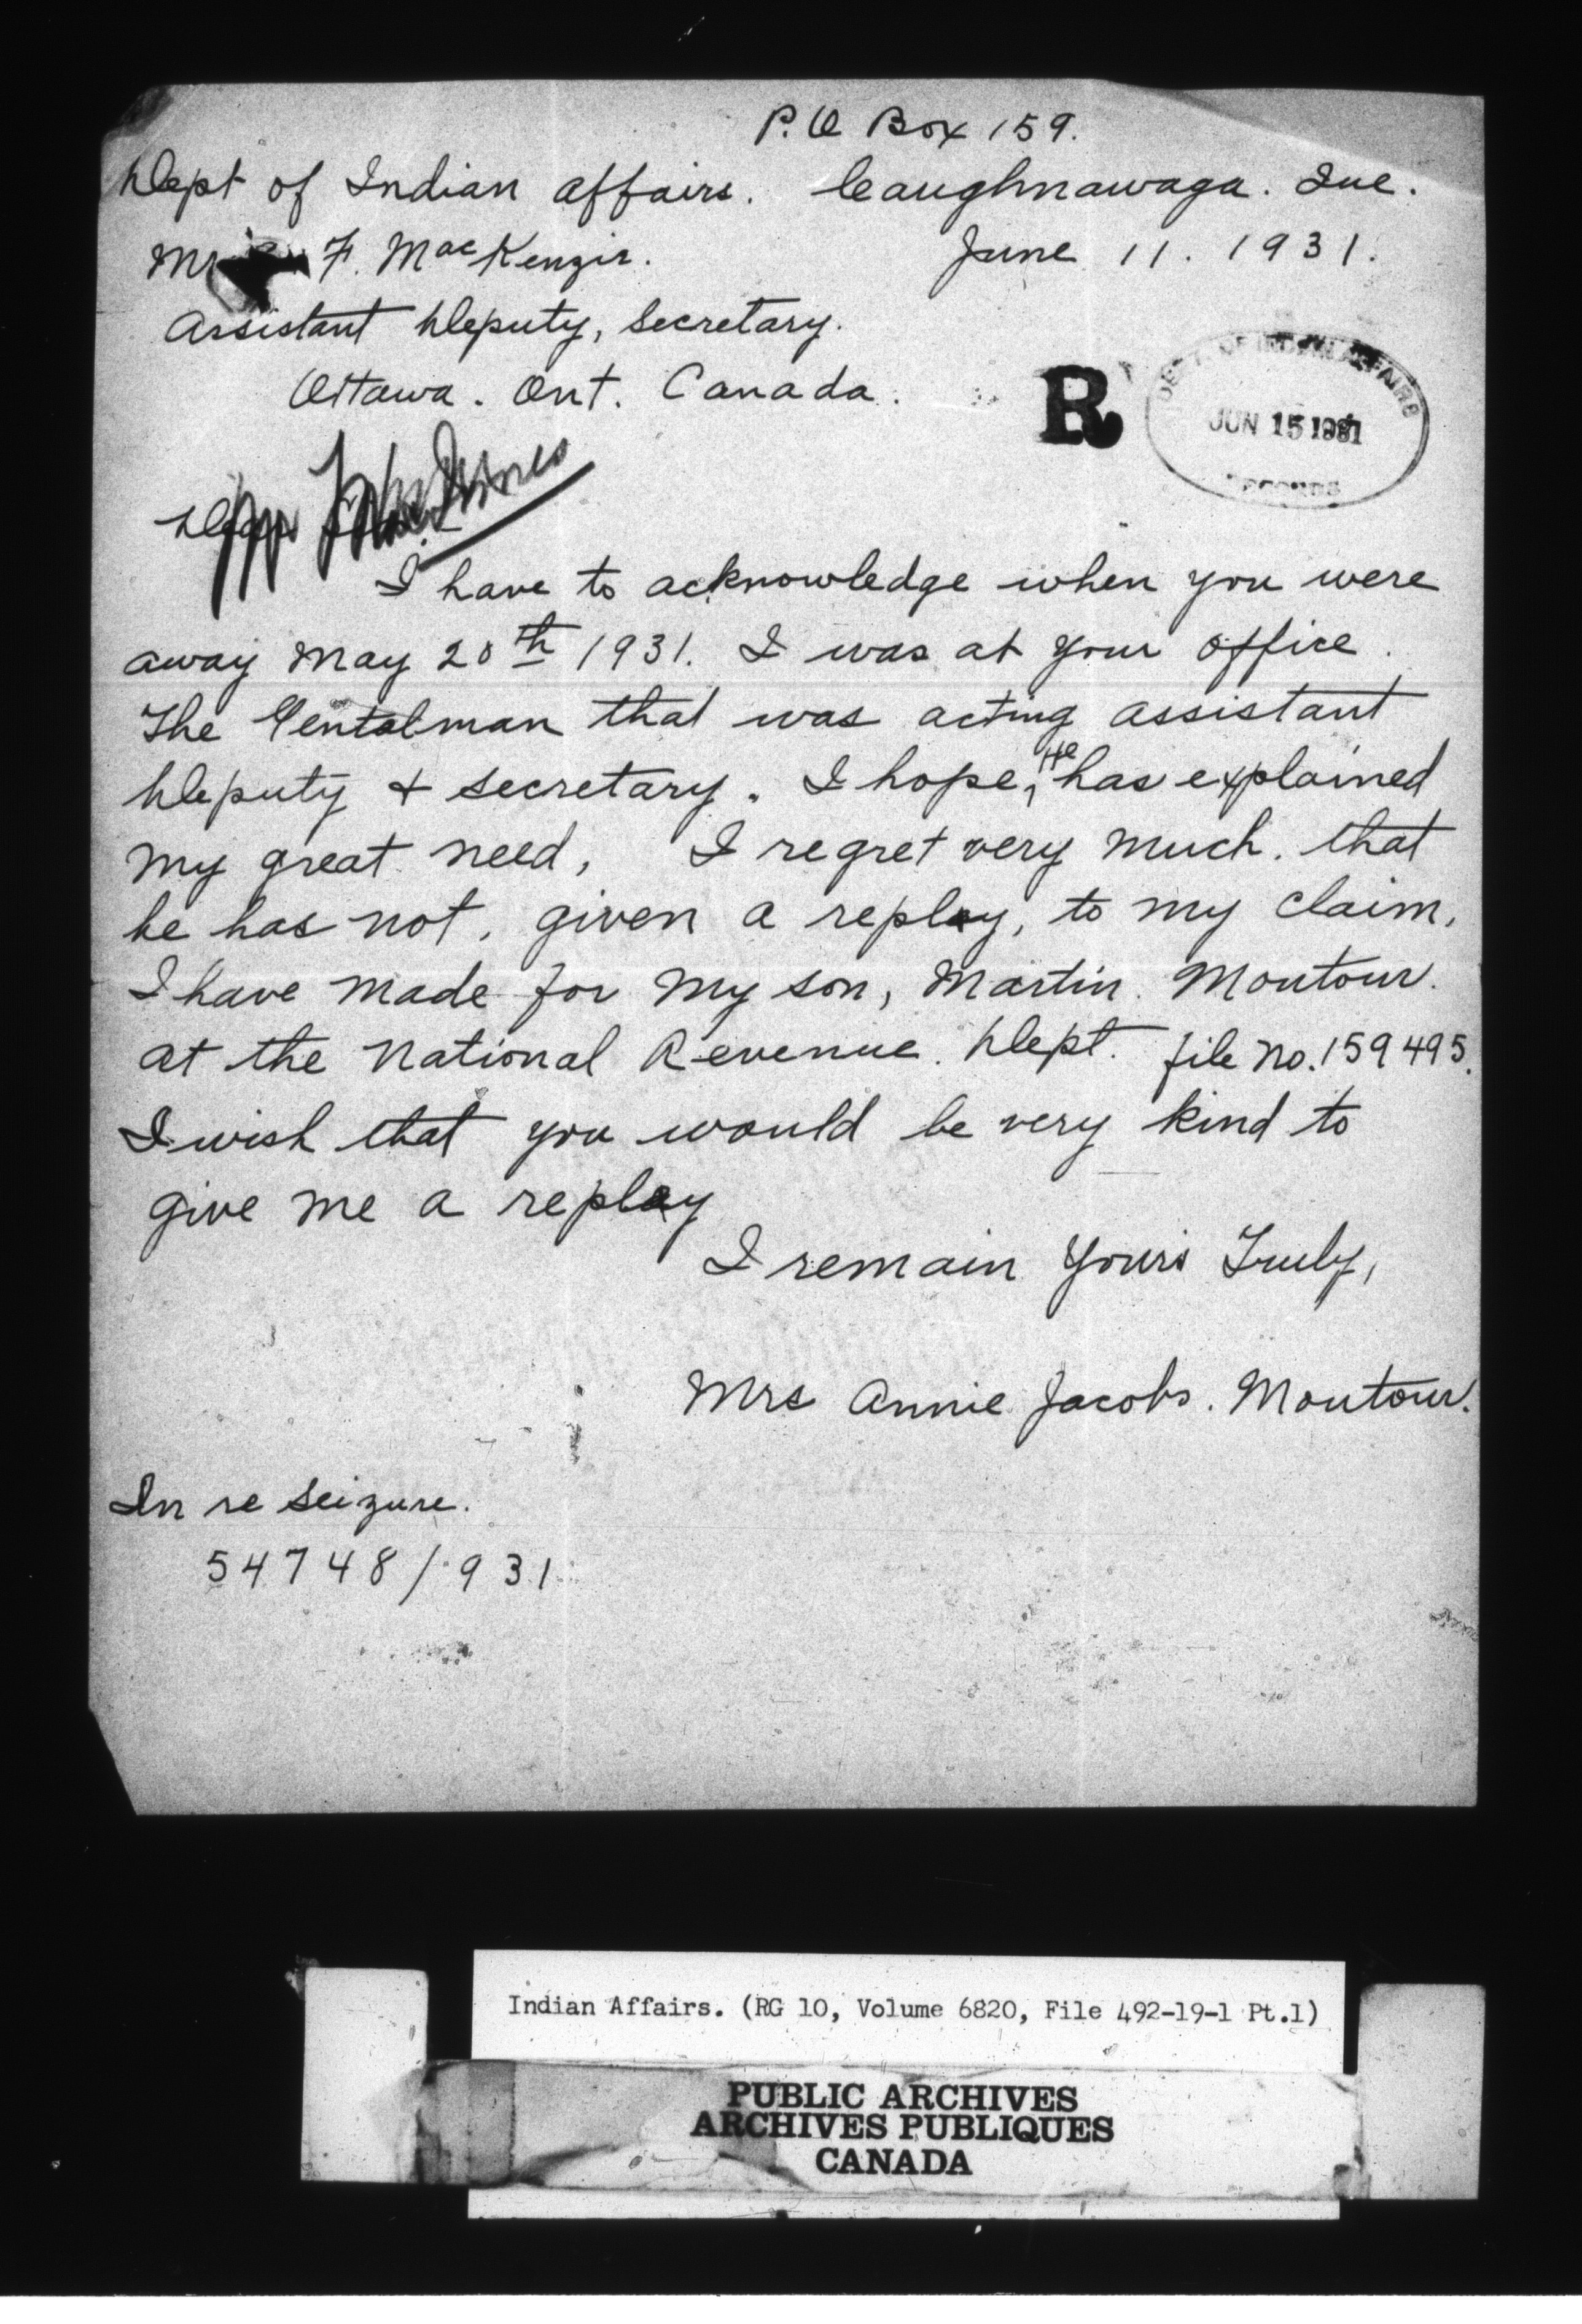 P.O Box 159.
Dept of Indian affairs. Caughnawaga. Que.
F. MacKenzie. June 11. 1931.
Assistant Deputy, Secretary.
Ottawa. Ont. Canada.
R
DEPT. OF INDIAN AFFAIRS
JUN 15 1931
RECORDS
Dear
I have to acknowledge when you were
away May 20th 1931. I was at your office.
The Gentelman that was acting assistant
Deputy & secretary. I hope, He has explained
my great need, I regret very much. that
he has not, given a replay, to my claim,
I have made for my son, Martin. Montour.
at the National Revenue. Dept. file no. 159495.
I wish that you would be very kind to
give me a replay
I remain Yours Truly,
Mrs Annie Jacobs. Montour.
In re seizure.
54748/931
Indian Affairs. (RG 10, Volume 6820, File 492-19-1 Pt.1)
PUBLIC ARCHIVES
ARCHIVES PUBLIQUES
CANADA